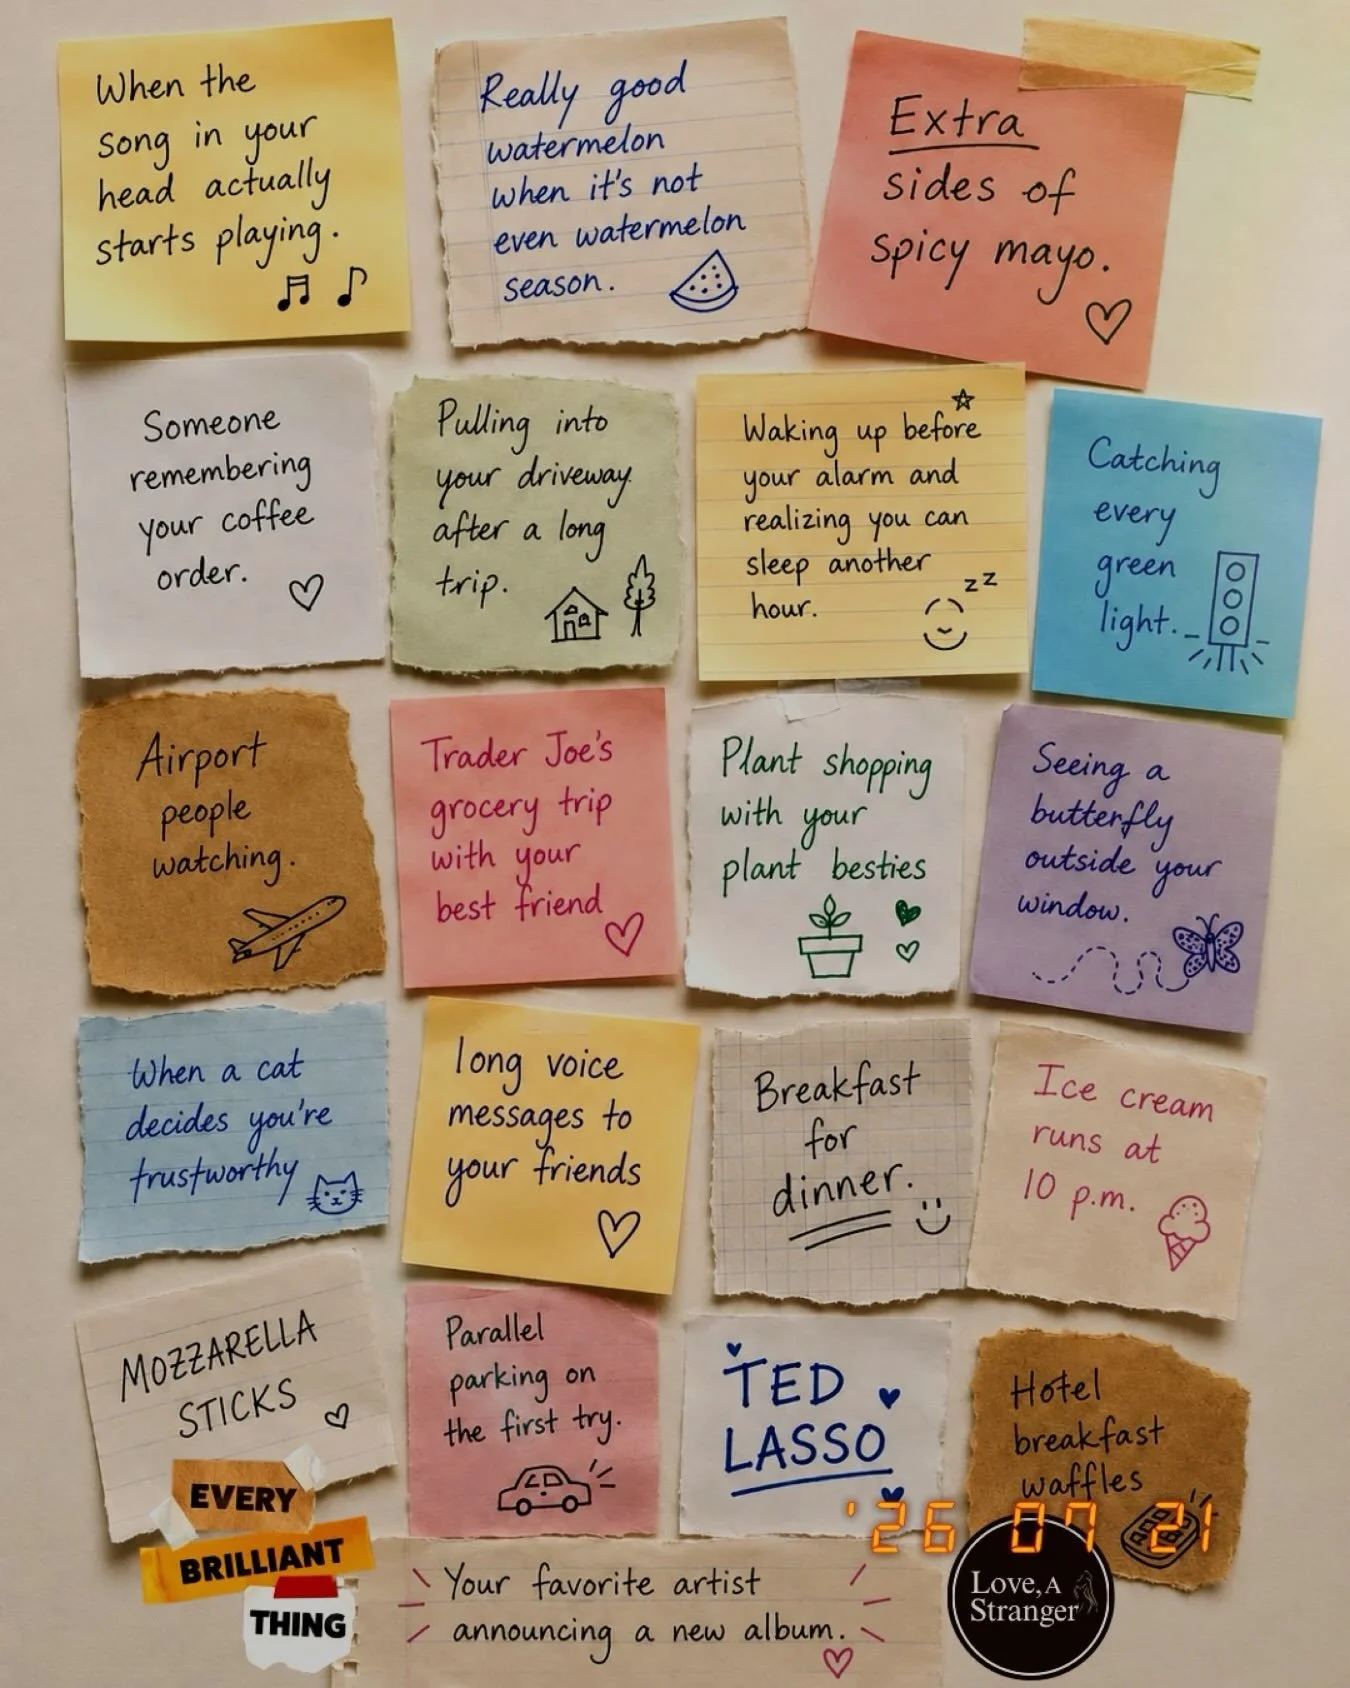 When the
song in your
head actually
starts playing.
Really good
watermelon
when it's not
even watermelon
season.
Extra
sides of
spicy mayo.
Someone
remembering
your coffee
order.
Pulling into
your driveway
after a long
trip.
Waking up before
your alarm and
realizing you can
sleep another
hour.
zz
Catching
every
green
light.
Airport
people
watching.
Trader Joe's
grocery trip
with your
best friend
Plant shopping
with your
plant besties
Seeing a
butterfly
outside your
window.
When a cat
decides you're
trustworthy
long voice
messages to
your friends
Breakfast
for
dinner.
Ice cream
runs at
10 p.m.
MOZZARELLA
STICKS
Parallel
parking on
the first try.
TED
LASSO
Hotel
breakfast
waffles
EVERY
BRILLIANT
THING
Your favorite artist
announcing a new album.
'26 07 21
Love, A
Stranger